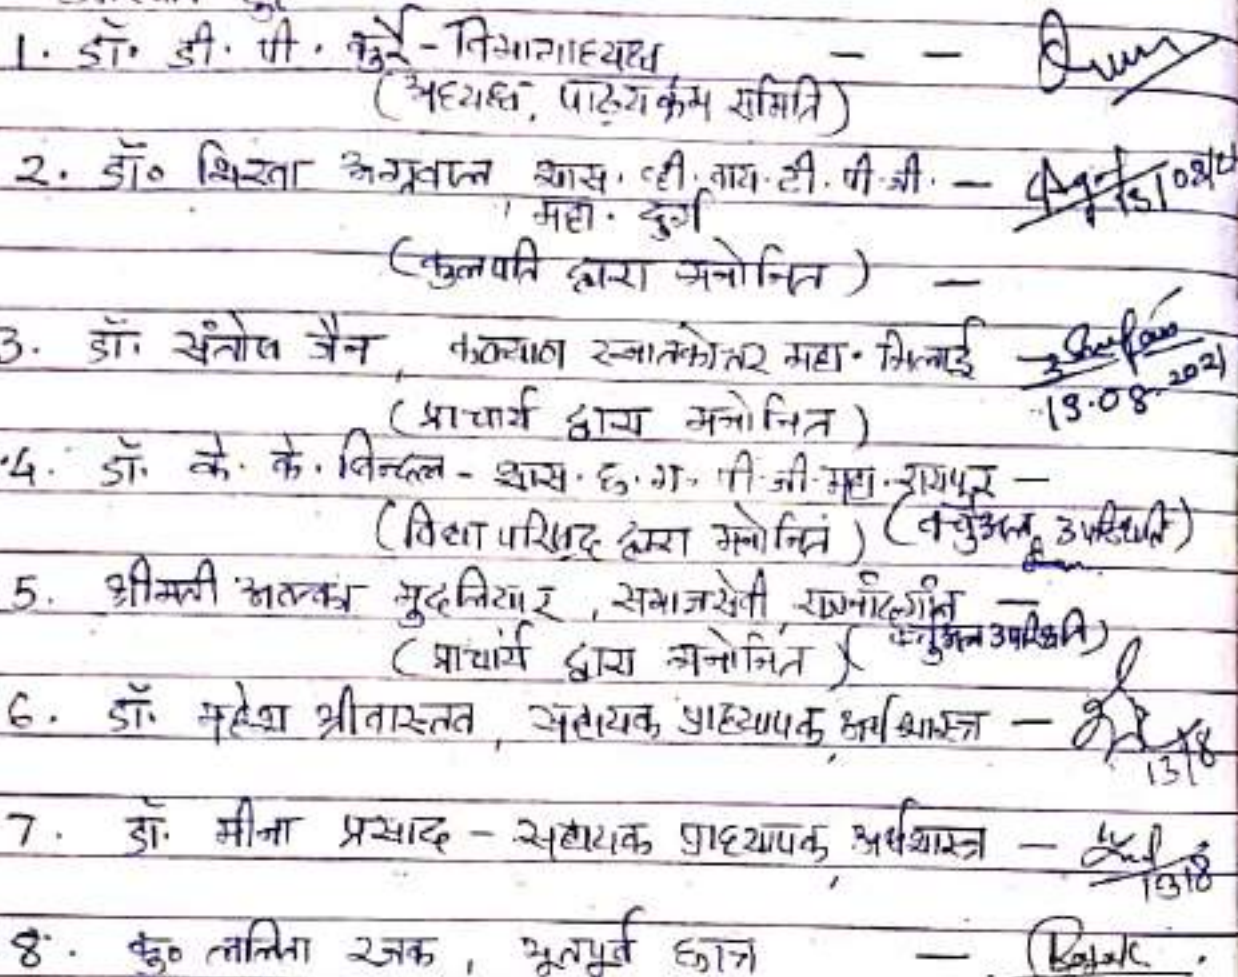 1. डॉ. डी. पी. कुर्रे - विभागाध्यक्ष - -
(अध्यक्ष, पाठ्यक्रम समिति)
2. डॉ० अग्रवाल शास. व्ही. वाय. टी. पी. जी. -
महा. दुर्ग
(कुलपति द्वारा मनोनित) -
3. डॉ. संतोष जैन, कल्याण स्नातकोत्तर महा. भिलाई -
19.08.2021
(प्राचार्य द्वारा मनोनित)
4. डॉ. के. के. बिन्दल - शास. छ. ग. पी. जी. महा. रायपुर -
(विद्या परिषद द्वारा मनोनित) (वर्चुअल उपस्थिति)
5. श्रीमती मुदलियार, समाजसेवी, राजनांदगांव -
(प्राचार्य द्वारा मनोनित) (वर्चुअल उपस्थिति)
6. डॉ. महेश श्रीवास्तव, सहायक प्राध्यापक, अर्थशास्त्र -
13/8
7. डॉ. मीना प्रसाद - सहायक प्राध्यापक, अर्थशास्त्र -
13/8
8. कु० ललिता रजक, भूतपूर्व छात्र -